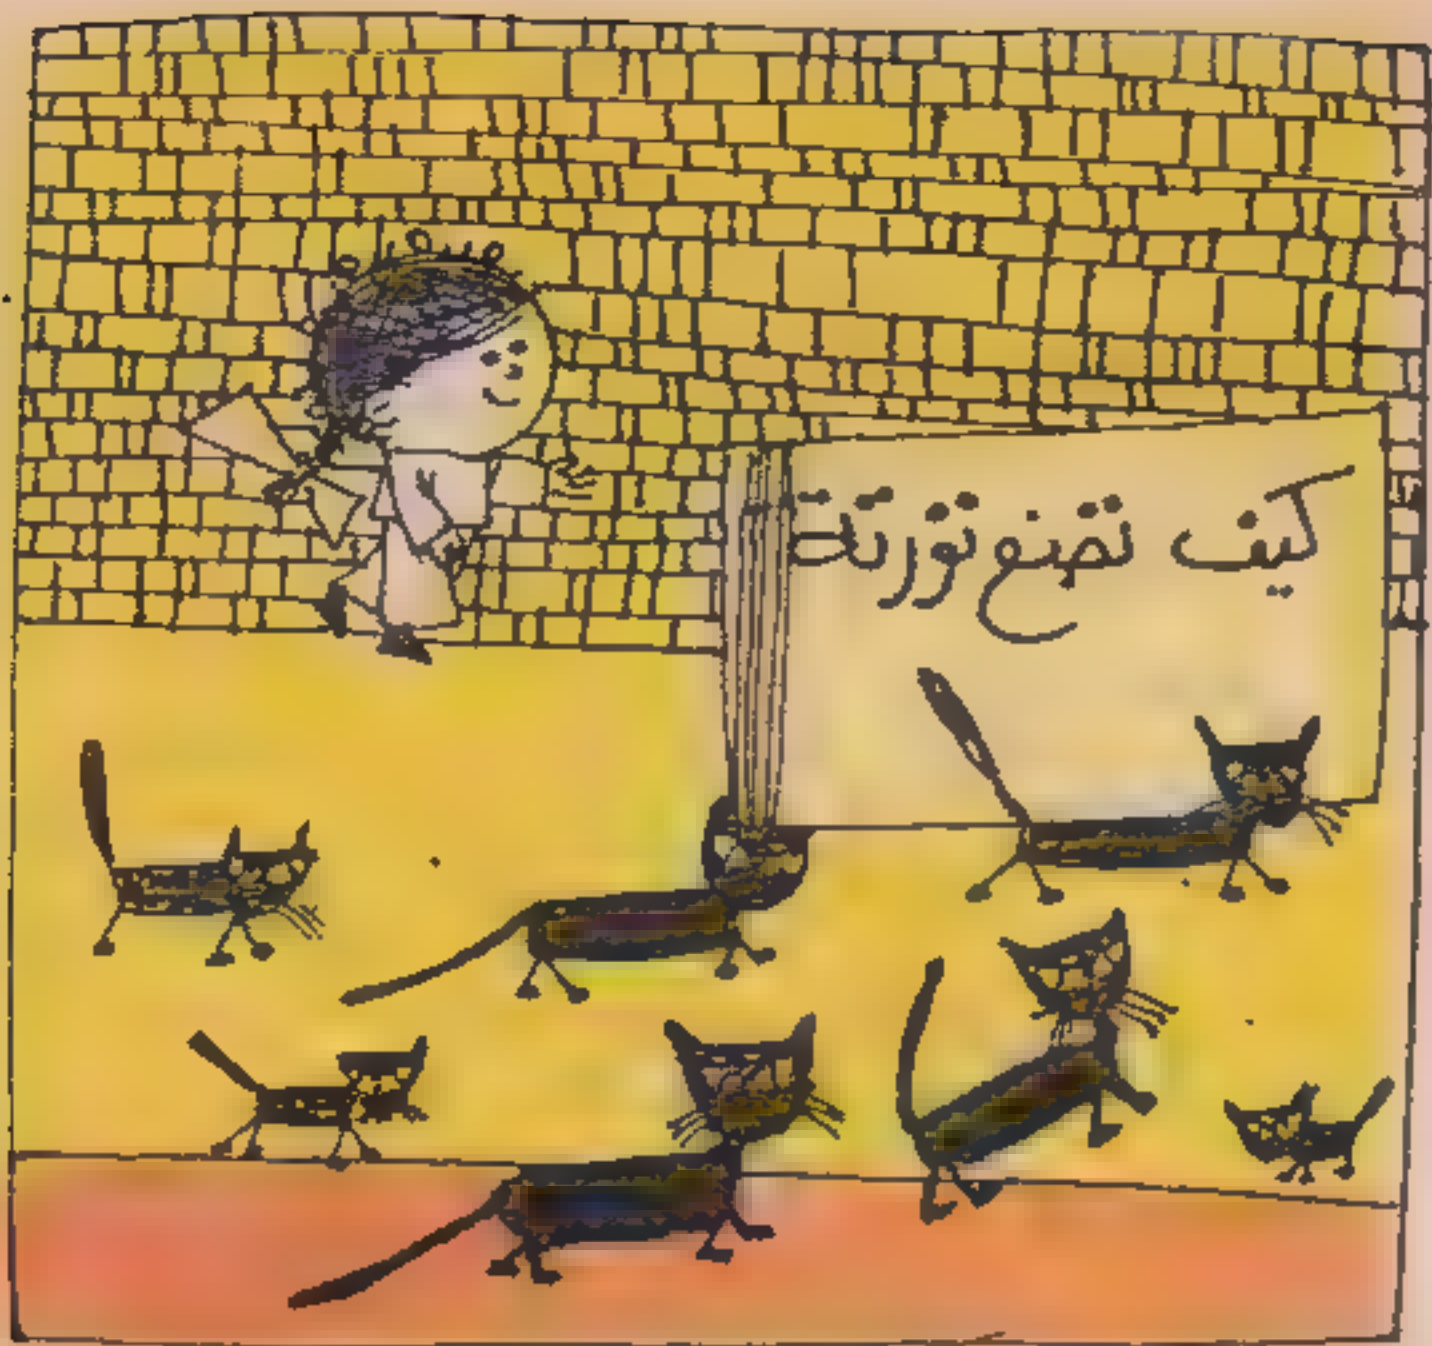 كيف تصنع تورتات